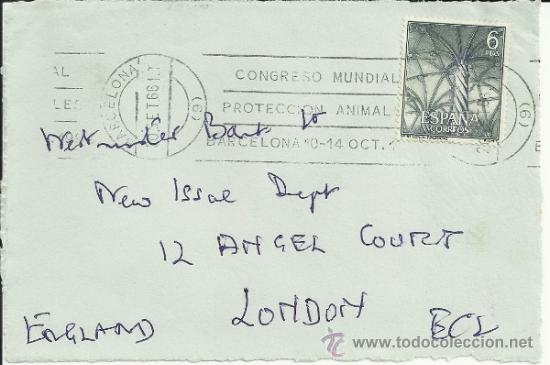 6
PTAS
ESPAÑA
CORREOS
BARCELONA
(6)
CONGRESO MUNDIAL
PROTECCION ANIMAL
BARCELONA 10-14 OCT.
(6)
AL
LES
Westminster Bank
New Issue Dept
12 ANGEL COURT
LONDON
ENGLAND
todocoleccion
www.todocoleccion.net